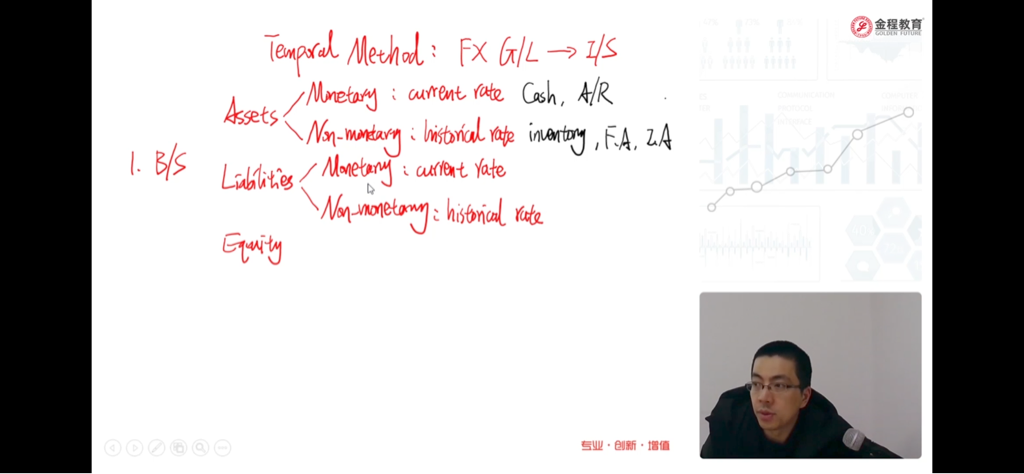 金程教育
GOLDEN FUTURE
Temporal Method : FX G/L → I/S
Assets
Monetary : current rate Cash, A/R
Non-monetary : historical rate inventory, F.A, I.A
1. B/S
Liabilities
Monetary : current rate
Non-monetary : historical rate
Equity
专业·创新·增值